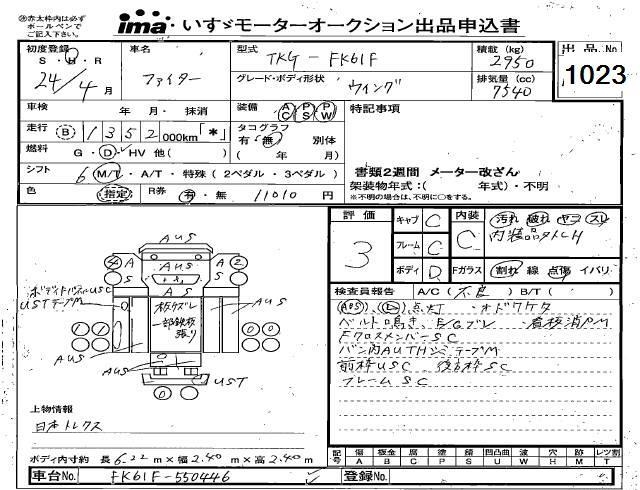 ㊟赤太枠内は必ず
ボールペンで
ご記入下さい。
ima いすゞモーターオークション出品申込書
初度登録 車名 型式 TKG-FK61F 積載 (kg) 2950 出品No
S・H・R 24/4月 ファイター グレード・ボディ形状 ウイング 排気量 (cc) 7540 1023
車検 年 月・ 抹消 装備 AC PS PW 特記事項
走行 B 1352 000km「*」 タコグラフ 有・無 別体
燃料 G・D・HV 他( ) ( 年 月)
シフト 6 M/T・A/T・特殊(2ペダル・3ペダル) 書類2週間 メーター改ざん
架装物年式:( 年式)・不明
色 指定 R券 有・無 11010 円 ※不明の場合は、不明に○をする。
評価 3 キャブ C 内装 C 汚れ 破れ ヤコ スレ
フレーム C 内装品欠品
ボディ D Fガラス 割れ 線 点傷 イバリ
検査員報告 A/C(不良) B/T( )
AUS
④ A AUS A ②
S S
ボディトビラUSC
UST テープM
板クズレ
一部鉄板
張り
AUS
AUS AUS
UST
ベルト鳴き、
FクロスメンバーSC
フレームSC
上物情報
日本トレクス
ボディ内寸約 長6.22m×幅2.40m×高2.40m
記号 傷 A 板金 B 腐 C 塗 P 錆 S 凹凸曲 U 波 W 穴 H 跡 M レツ割 T
車台No. FK61F-550446 登録No.